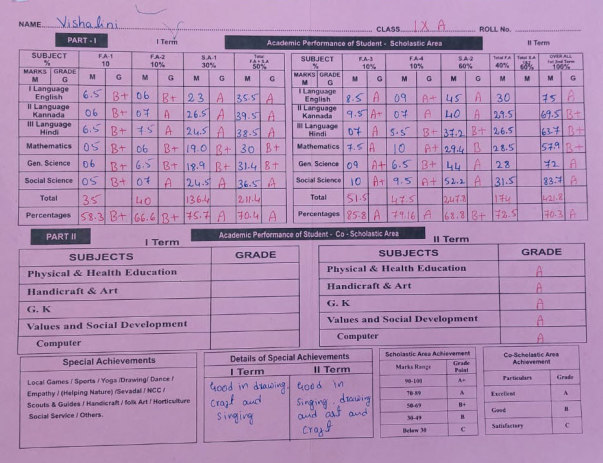 NAME Vishalini CLASS IX A ROLL No.
PART - I I Term Academic Performance of Student - Scholastic Area II Term
SUBJECT % F.A-1 10 F.A-2 10% S.A-1 30% Total F.A + S.A 50% SUBJECT % F.A-3 10% F.A-4 10% S.A-2 60% Total F.A 40% Total S.A 60% OVER ALL 1st 2nd Term 100%
MARKS GRADE M G M G M G M G M G MARKS GRADE M G M G M G M G M M M G
I Language English 6.5 B+ 06 B+ 23 A 35.5 A I Language English 8.5 A 09 A+ 45 A 30 75 A
II Language Kannada 06 B+ 07 A 26.5 A 39.5 A II Language Kannada 9.5 A+ 07 A 40 A 29.5 69.5 B+
III Language Hindi 6.5 B+ 7.5 A 24.5 A 38.5 A III Language Hindi 07 A 5.5 B+ 37.2 B+ 26.5 63.7 B+
Mathematics 05 B+ 06 B+ 19.0 B+ 30 B+ Mathematics 7.5 A 10 A+ 29.4 B 28.5 57.9 B+
Gen. Science 06 B+ 6.5 B+ 18.9 B+ 31.4 B+ Gen. Science 09 A+ 6.5 B+ 44 A 28 72 A
Social Science 05 B+ 07 A 24.5 A 36.5 A Social Science 10 A+ 9.5 A+ 52.2 A 31.5 83.7 A
Total 35 40 136.4 211.4 Total 51.5 47.5 247.8 174 421.8
Percentages 58.3 B+ 66.6 B+ 75.7 A 70.4 A Percentages 85.8 A 79.16 A 68.8 B+ 72.5 70.3 A
PART II I Term Academic Performance of Student - Co - Scholastic Area II Term
SUBJECTS GRADE SUBJECTS GRADE
Physical & Health Education Physical & Health Education A
Handicraft & Art Handicraft & Art A
G. K G. K A
Values and Social Development Values and Social Development A
Computer Computer A
Special Achievements
Local Games / Sports / Yoga /Drawing/ Dance /
Empathy / (Helping Nature) /Sevadal / NCC /
Scouts & Guides / Handicraft / folk Art / Horticulture
Social Service / Others.
Details of Special Achievements
I Term II Term
Good in drawing, Good in
craft and singing, drawing
singing and art and
craft
Scholastic Area Achievement
Marks Range Grade Point
90-100 A+
70-89 A
50-69 B+
30-49 B
Below 30 C
Co-Scholastic Area
Achievement
Particulars Grade
Excellent A
Good B
Satisfactory C